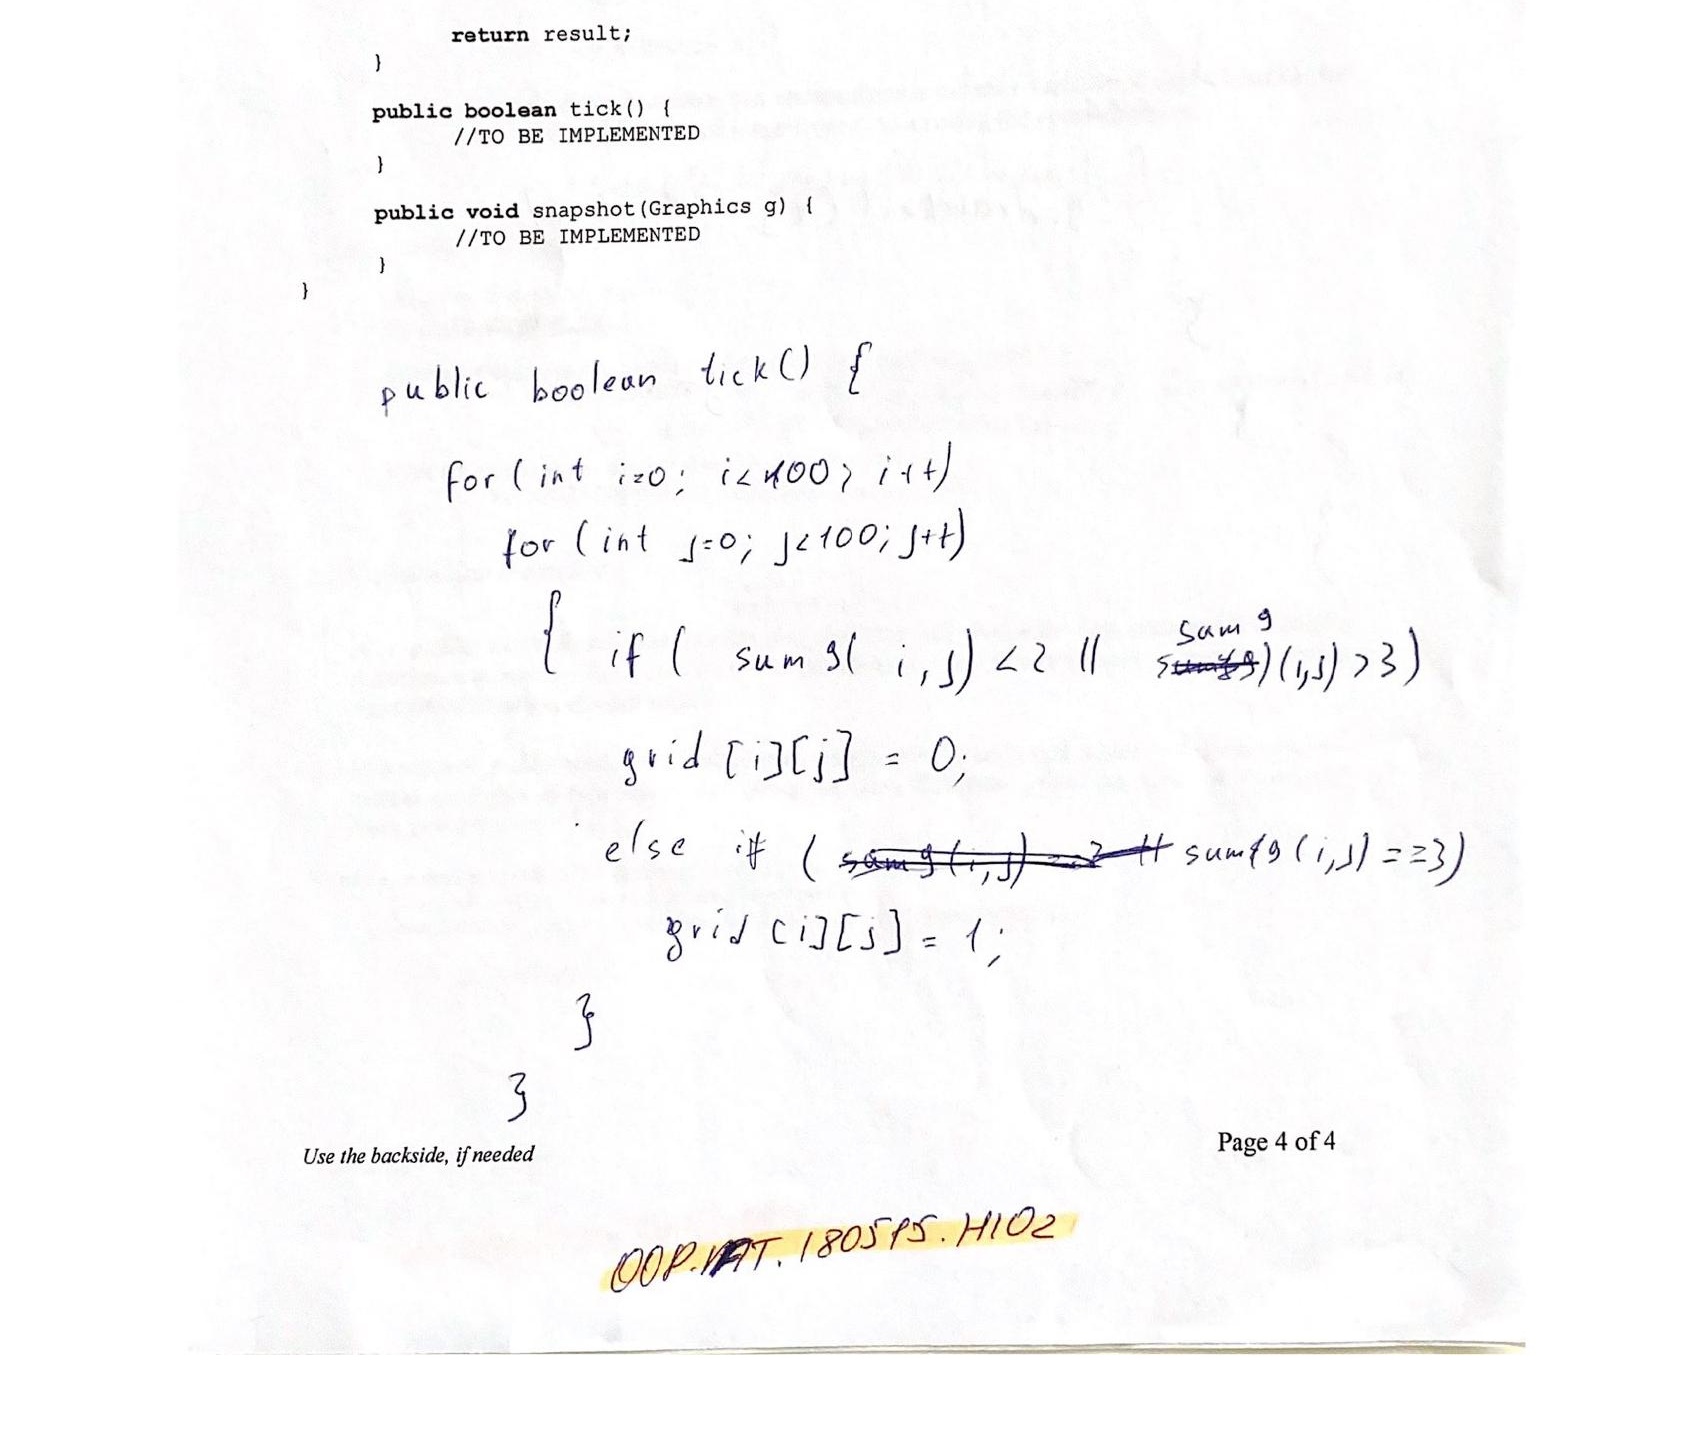 return result;
}
public boolean tick() {
//TO BE IMPLEMENTED
}
public void snapshot(Graphics g) {
//TO BE IMPLEMENTED
}
}
public boolean tick() {
for ( int i=0; i<100; i++)
for ( int j=0; j<100; j++)
{ if ( sum9( i, j) <2 || sum9 (i,j) >3)
grid [i][j] = 0;
else if ( sum9 (i,j) ==3)
grid [i][j] = 1;
}
}
Use the backside, if needed
Page 4 of 4